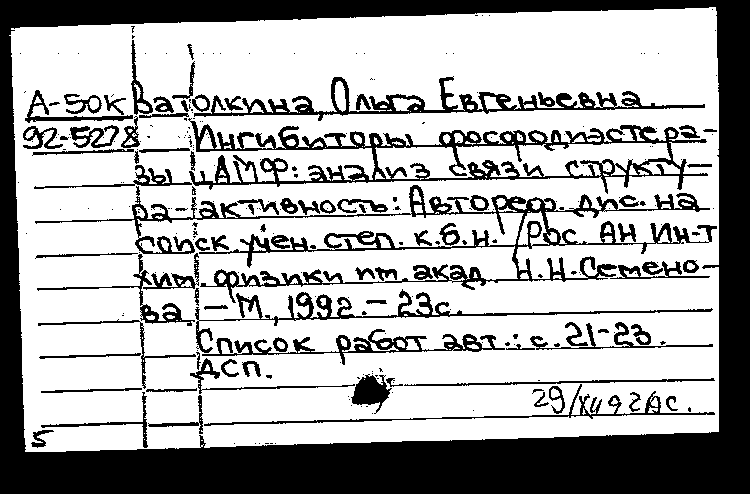 А-50К Ватолкина, Ольга Евгеньевна.
92-5278 Ингибиторы фосфодиэстера-
зы цАМФ: анализ связи структу-
ра-активность: Автореф. дис. на
соиск. учен. степ. к.б.н. / Рос. АН, Ин-т
хим. физики им. акад. Н.Н. Семено-
ва. - М., 1992. - 23с.
Список работ авт.: с. 21-23.
ДСП.
29/XII 92
5